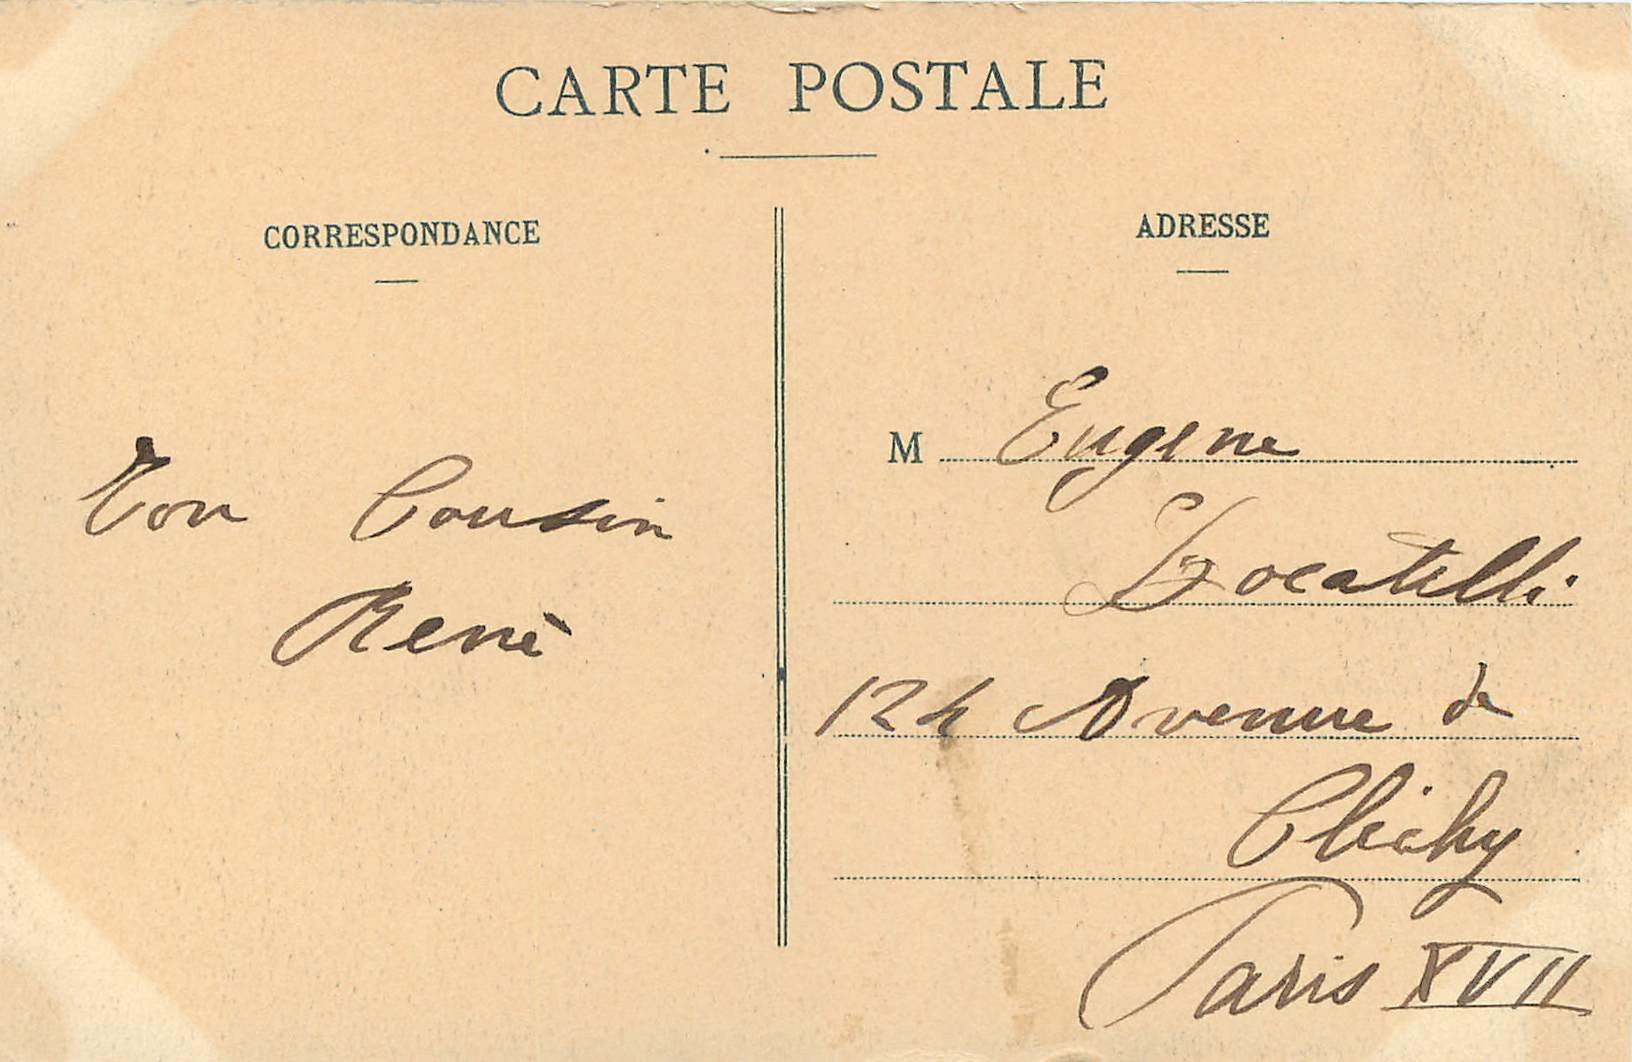 CARTE POSTALE
CORRESPONDANCE
Ton Cousin
René
ADRESSE
M Eugene
Locatelli
124 Avenue de
Clichy
Paris XVII